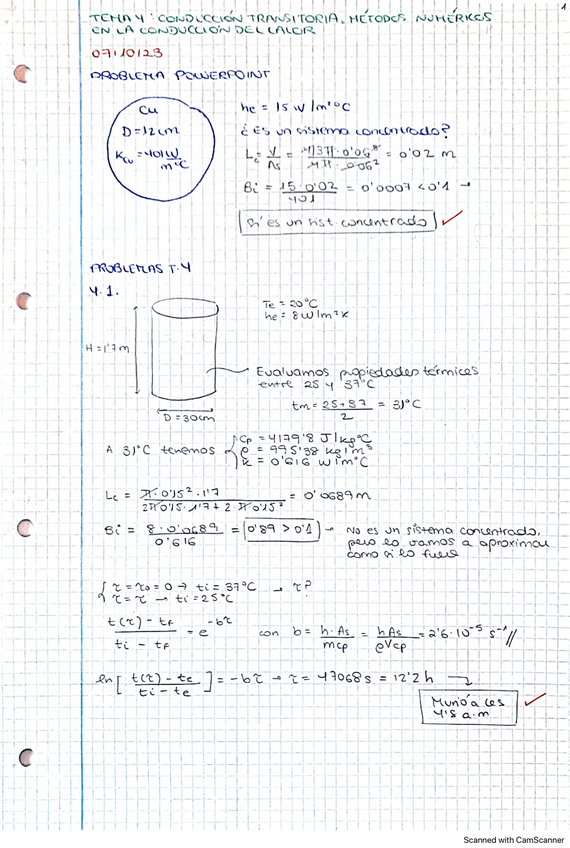 1
TEMA 4: CONDUCCIÓN TRANSITORIA. MÉTODOS NUMÉRICOS
EN LA CONDUCCIÓN DEL CALOR
07/10/23
PROBLEMA POWERPOINT
Cu
D = 12 cm
Kcu = 401 W/m°C
he = 15 W/m²°C
¿Es un sistema concentrado?
Lc = V/As = 4/3 π · 0'06³ / 4π · 0'06² = 0'02 m
Bi = 15 · 0'02 / 401 = 0'0007 < 0'1 →
Sí es un sist. concentrado
PROBLEMAS T.4
4.1.
H = 1'7 m
D = 30 cm
Te = 20°C
he = 8 W/m²K
Evaluamos propiedades térmicas
entre 25 y 37°C
tm = 25 + 37 / 2 = 31°C
A 31°C tenemos
Cp = 4179'8 J/kg°C
ρ = 995'38 kg/m³
k = 0'616 W/m°C
Lc = π · 0'15² · 1'7 / 2π 0'15 · 1'7 + 2 · π · 0'15² = 0'0689 m
Bi = 8 · 0'0689 / 0'616 = 0'89 > 0'1 → No es un sistema concentrado,
pero lo vamos a aproximar
como si lo fuera
τ = τ0 = 0 → ti = 37°C → τ?
τ = τ → ti = 25°C
t(τ) - tf / ti - tf = e^-bτ con b = h · As / m cp = h As / ρ V cp = 2'6 · 10⁻⁵ s⁻¹ //
ln [ t(τ) - te / ti - te ] = -bτ → τ = 47068 s = 12'2 h
Murió a las
4'5 a.m
Scanned with CamScanner